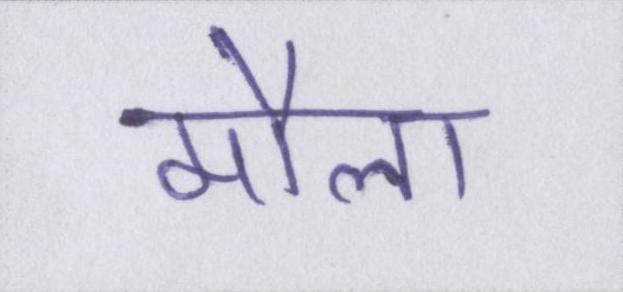 मौला